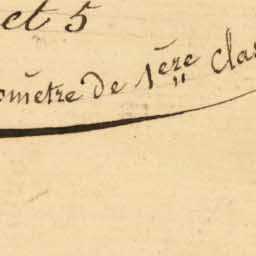 ct 5
omètre de 1ère Clas